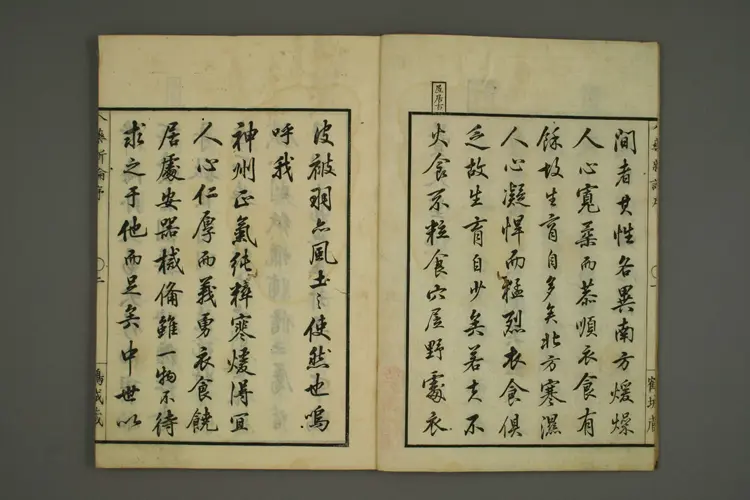 間者其性各異南方煖燥
人心寛柔而恭順衣食有
餘故生育自多矣北方寒濕
人心凝悍而猛烈衣食俱
乏故生育自少矣若夫不
火食不粒食穴居野處衣
皮被羽亦風土之使然也嗚
呼我
神州正氣純粹寒煖得宜
人心仁厚而義勇衣食饒
居處安器械備雖一物不待
求之于他而足矣中世以